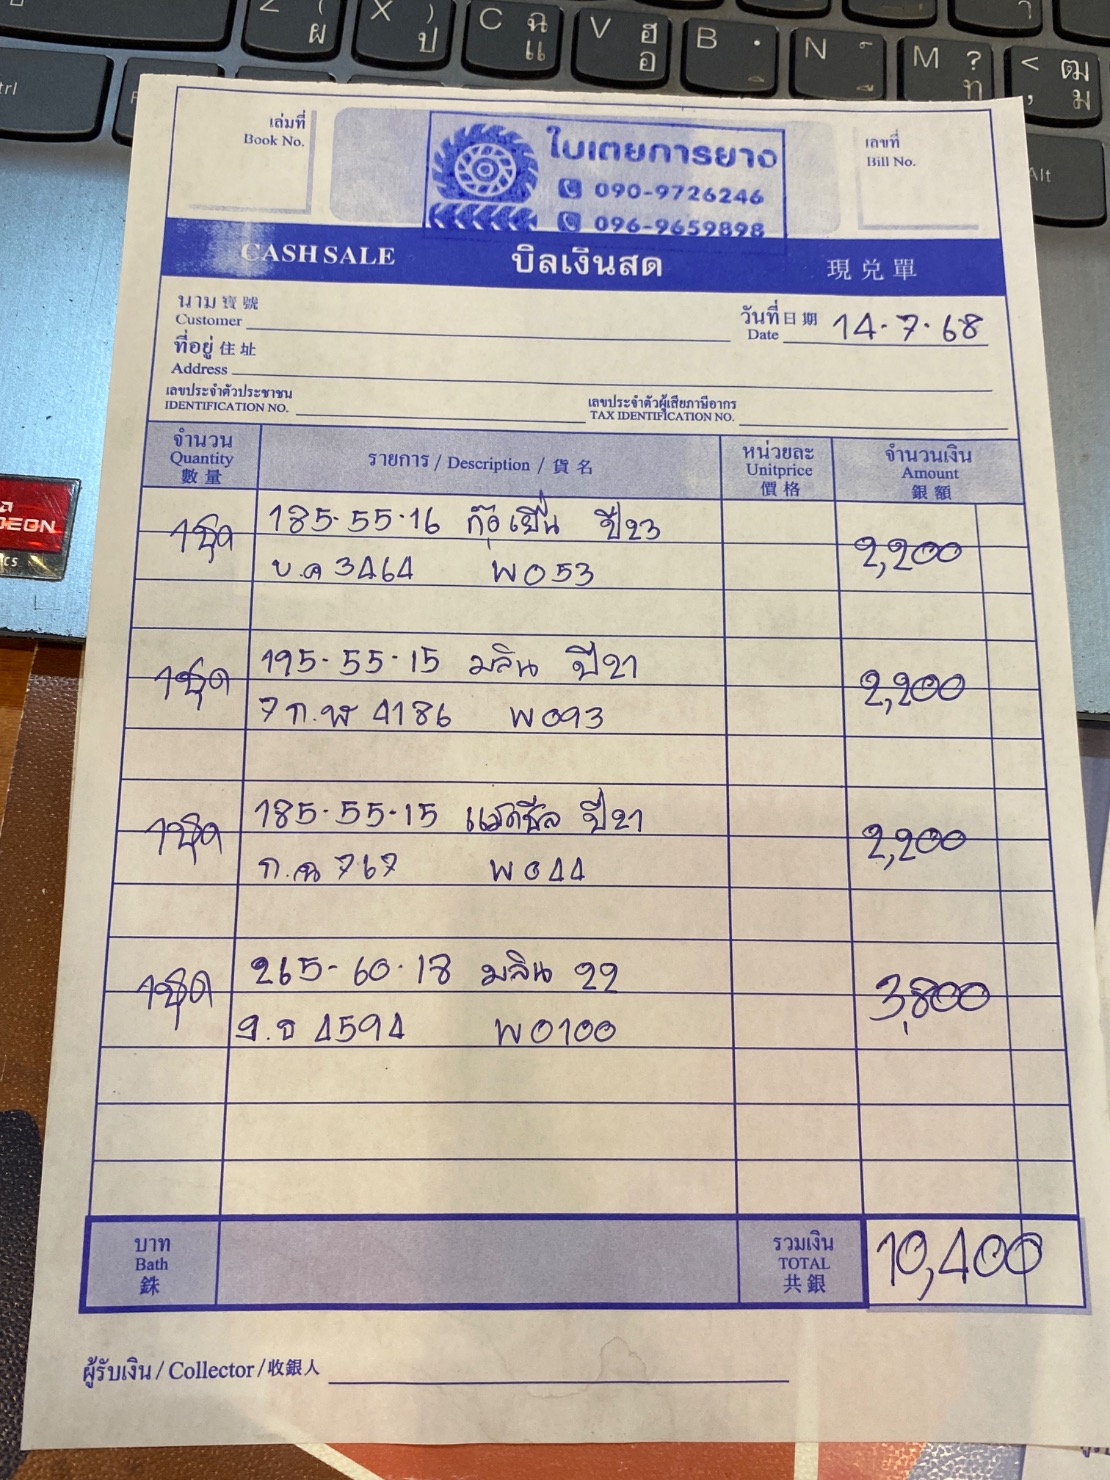 Z ผ
X ) ป
C ฉ แ
V ฮ อ
B
N
M ? ท
< ฒ , ม
Alt
เล่มที่
Book No.
ใบเตยการยาง
090-9726246
096-9659898
เลขที่
Bill No.
CASH SALE บิลเงินสด 現兑單
นาม 寶號
Customer
วันที่ 日期 14.7.68
Date
ที่อยู่ 住址
Address
เลขประจำตัวประชาชน
IDENTIFICATION NO.
เลขประจำตัวผู้เสียภาษีอากร
TAX IDENTIFICATION NO.
จำนวน
Quantity
數量
รายการ / Description / 貨名
หน่วยละ
Unitprice
價格
จำนวนเงิน
Amount
銀額
1ชุด 185-55-16 ปี23 2,200
บ.ค 3464 พ053
1ชุด 195-55-15 มลิน ปี21 2,200
7 ก.ฬ 4186 พ093
1ชุด 185-55-15 แมดซีล ปี21 2,200
767 พ044
1ชุด 265-60-18 มลิน 22 3,800
4594 พ0100
บาท
Bath
銖
รวมเงิน
TOTAL
共銀
10,400
ผู้รับเงิน / Collector / 收銀人